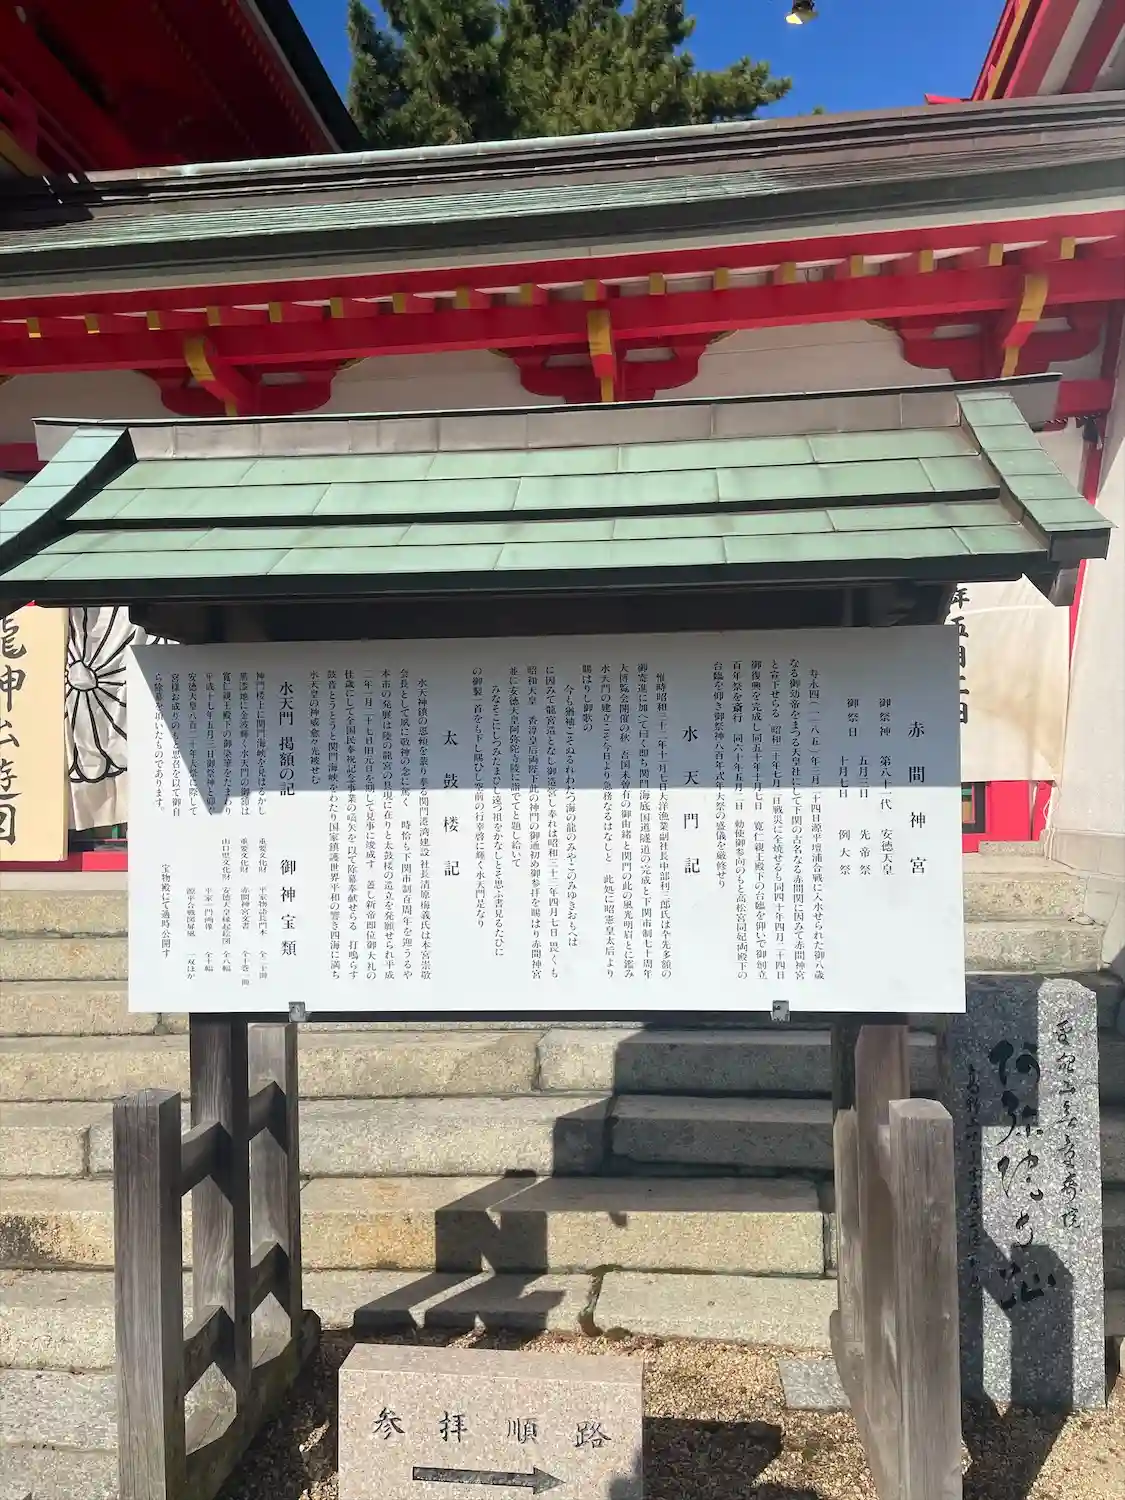 赤間神宮
御祭神　第八十一代　安徳天皇
御祭日　五月三日　先帝祭
十月七日　例大祭
寿永四(一一八五)年三月二十四日源平壇浦合戦に入水せられた御八歳
なる御幼帝をまつる天皇社にして下関の古名なる赤間関に因みて赤間神宮
と宣下せらる　昭和二十年七月二日戦災に全焼せるも同四十年四月二十四日
御復興を完成し同五十年十月七日　寛仁親王殿下の台臨を仰いで御創立
百年祭を斎行　同六十年五月二日　勅使御参向のもと高松宮同妃両殿下の
台臨を仰き御祭神八百年式年大祭の盛儀を厳修せり
水天門記
惟時昭和三十二年十一月七日大洋漁業副社長中部利三郎氏は今先多額の
御寄進に加へて曰す即ち関門海底国道隧道の完成と下関市制七十周年
大博覧会開催の秋　吾国未曽有の御由緒と関門の此の風光明眉とに鑑み
水天門の建立こそ今日より急務なるはなしと　此処に昭憲皇太后より
賜はりし御歌の
今も猶袖こそぬるれわたつ海の龍のみやこのみゆきおもへは
に因みて龍宮造となし御造営し奉れは昭和三十三年四月七日　畏くも
昭和天皇　香淳皇后両陛下此の神門の御通初め御参拝を賜はり赤間神宮
並に安徳天皇阿弥陀寺陵に詣でてと題し給いて
みなそこにしつみたまひし遠つ祖をかなしとそ思ふ書見るたひに
の御製一首をも下し賜ひし空前の行幸啓に輝く水天門是なり
太鼓楼記
水天神鎮の恩頼を蒙り奉る関門港湾建設社長清原梅義氏は本宮崇敬
会長として夙に敬神の念に篤く　時恰も下関市制百周年を迎うるや
本市の発展は陸の龍宮の具現に在りと太鼓楼の造立を発願せられ平成
二年一月二十七日旧元日を期して見事に竣成す　蓋し新帝即位御大礼の
佳歳にして全国民奉祝記念事業の嚆矢を以て除幕奉献せらる　打鳴らす
鼓音とうとうと関門海峡をわたり国家鎮護世界平和の響き四海に満ち
水天皇の神威愈々光被せむ
水天門　掲額の記
神門楼上に関門海峡を見はるかし
黒漆地に金波輝く水天門の御額は
寛仁親王殿下の御染筆をたまわり
平成十七年五月三日御祭神に御幸
安徳天皇八百二十年大祭に際して
宮様お成りのもと思召を以て御自
ら除幕を頂いたものであります。
御神宝類
重要文化財　平家物語長門本　全二十冊
重要文化財　赤間神宮文書　全十巻一冊
山口県文化財　安徳天皇縁起絵図　全八幅
平家一門画像　全十幅
源平合戦図屏風　一双ほか
宝物殿にて適時公開す
龍神
年五月二日
参拝順路